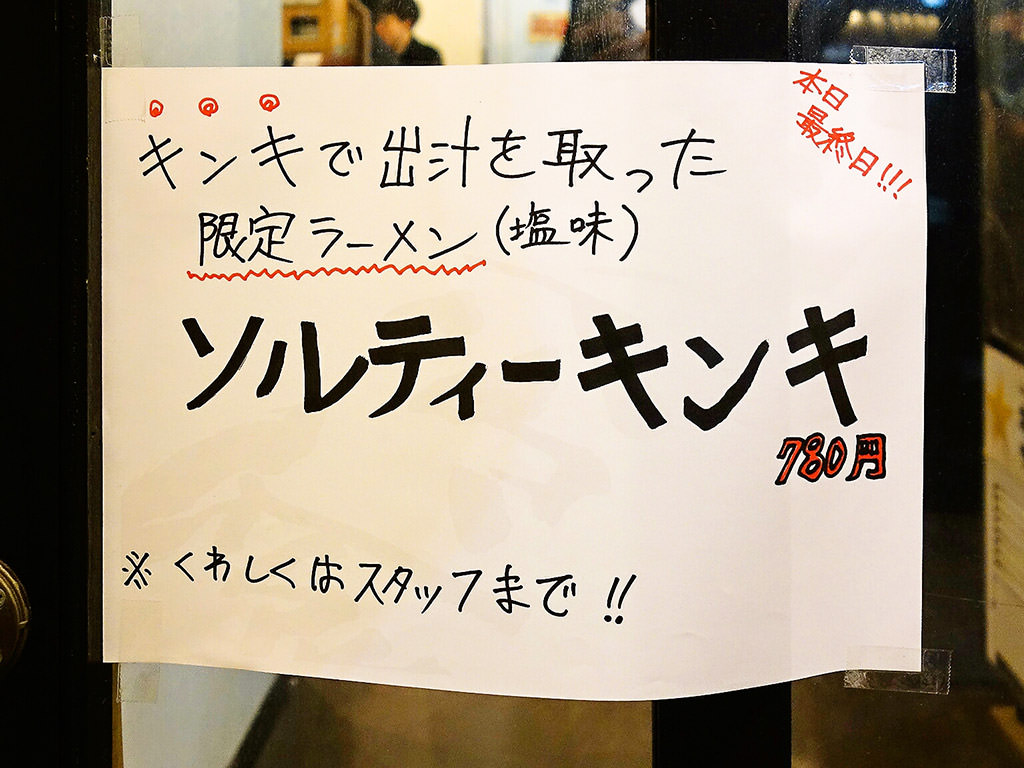 本日
最終日!!!
キンキで出汁を取った
限定ラーメン(塩味)
ソルティーキンキ
780円
※くわしくはスタッフまで!!